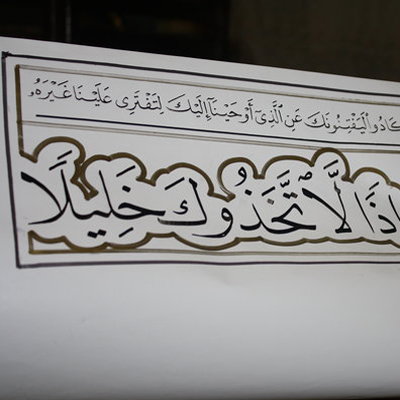 كَادُوا۟ لَيَفْتِنُونَكَ عَنِ ٱلَّذِىٓ أَوْحَيْنَآ إِلَيْكَ لِتَفْتَرِىَ عَلَيْنَا غَيْرَهُۥ
إِذًا لَّٱتَّخَذُوكَ خَلِيلًا